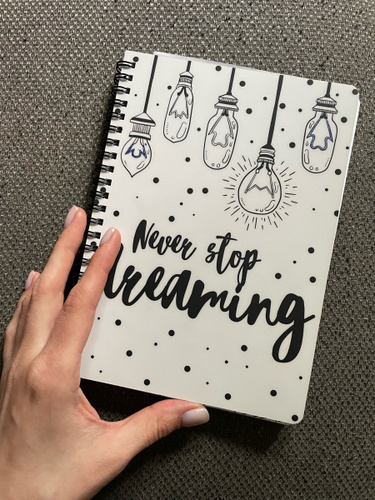 Never stop
dreaming